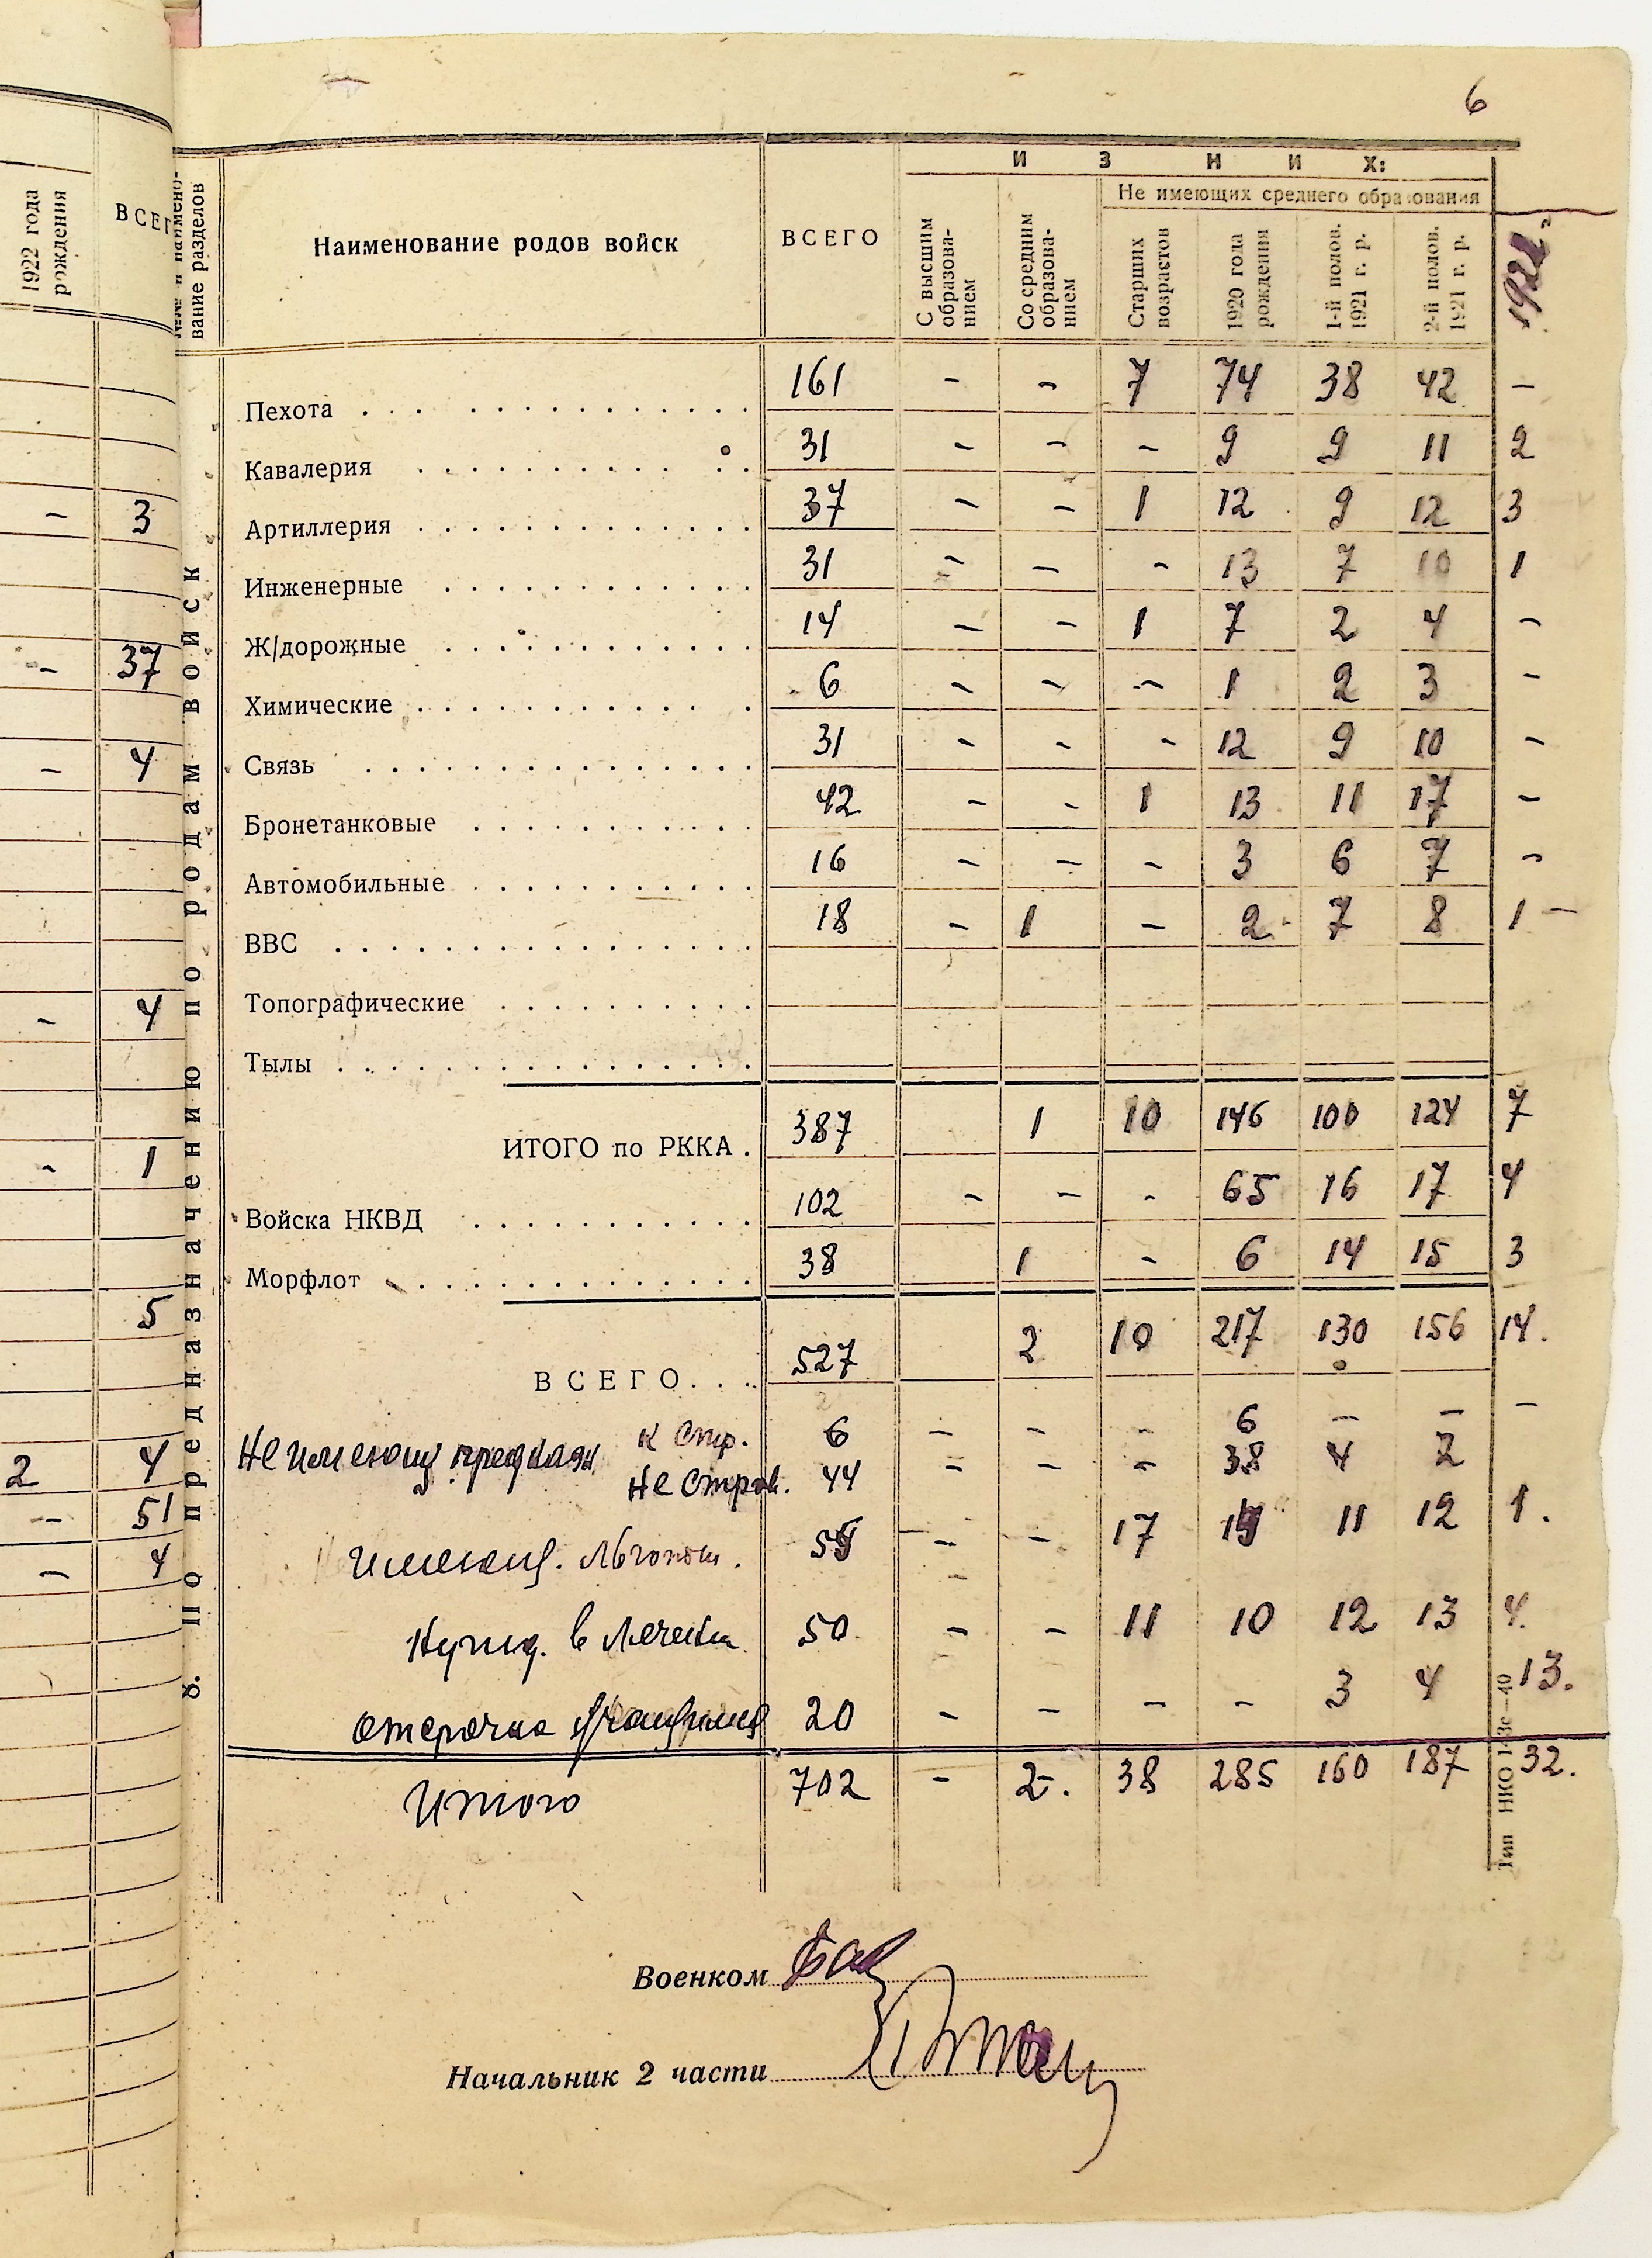 6
1922 года рождения
ВСЕГ
3
37
4
4
1
5
2 4
51
4
вание разделов
8. По предназначению по родам войск
И З Н И Х:
Не имеющих среднего образования
Наименование родов войск
ВСЕГО
С высшим образова-нием
Со средним образова-нием
Старших возрастов
1920 года рождения
1-й полов. 1921 г. р.
2-й полов. 1921 г. р.
1922
Пехота 161 - - 7 74 38 42 -
Кавалерия 31 - - - 9 9 11 2
Артиллерия 37 - - 1 12 9 12 3
Инженерные 31 - - - 13 7 10 1
Ж/дорожные 14 - - 1 7 2 4 -
Химические 6 - - - 1 2 3 -
Связь 31 - - - 12 9 10 -
Бронетанковые 42 - - 1 13 11 17 -
Автомобильные 16 - - - 3 6 7 -
ВВС 18 - 1 - 2 7 8 1 -
Топографические
Тылы
ИТОГО по РККА 387 1 10 146 100 124 7
Войска НКВД 102 - - - 65 16 17 4
Морфлот 38 1 - 6 14 15 3
ВСЕГО 527 2 10 217 130 156 14.
к Стр. 6 - - - 6 - - -
не Стров. 44 - - - 38 4 2
- - 17 11 12 1.
в 50 - - 11 10 12 13 4.
20 - - - - 3 4 13.
Итого 702 - 2-. 38 285 160 187 32.
Тип НКО 143с—40
Военком
Начальник 2 части